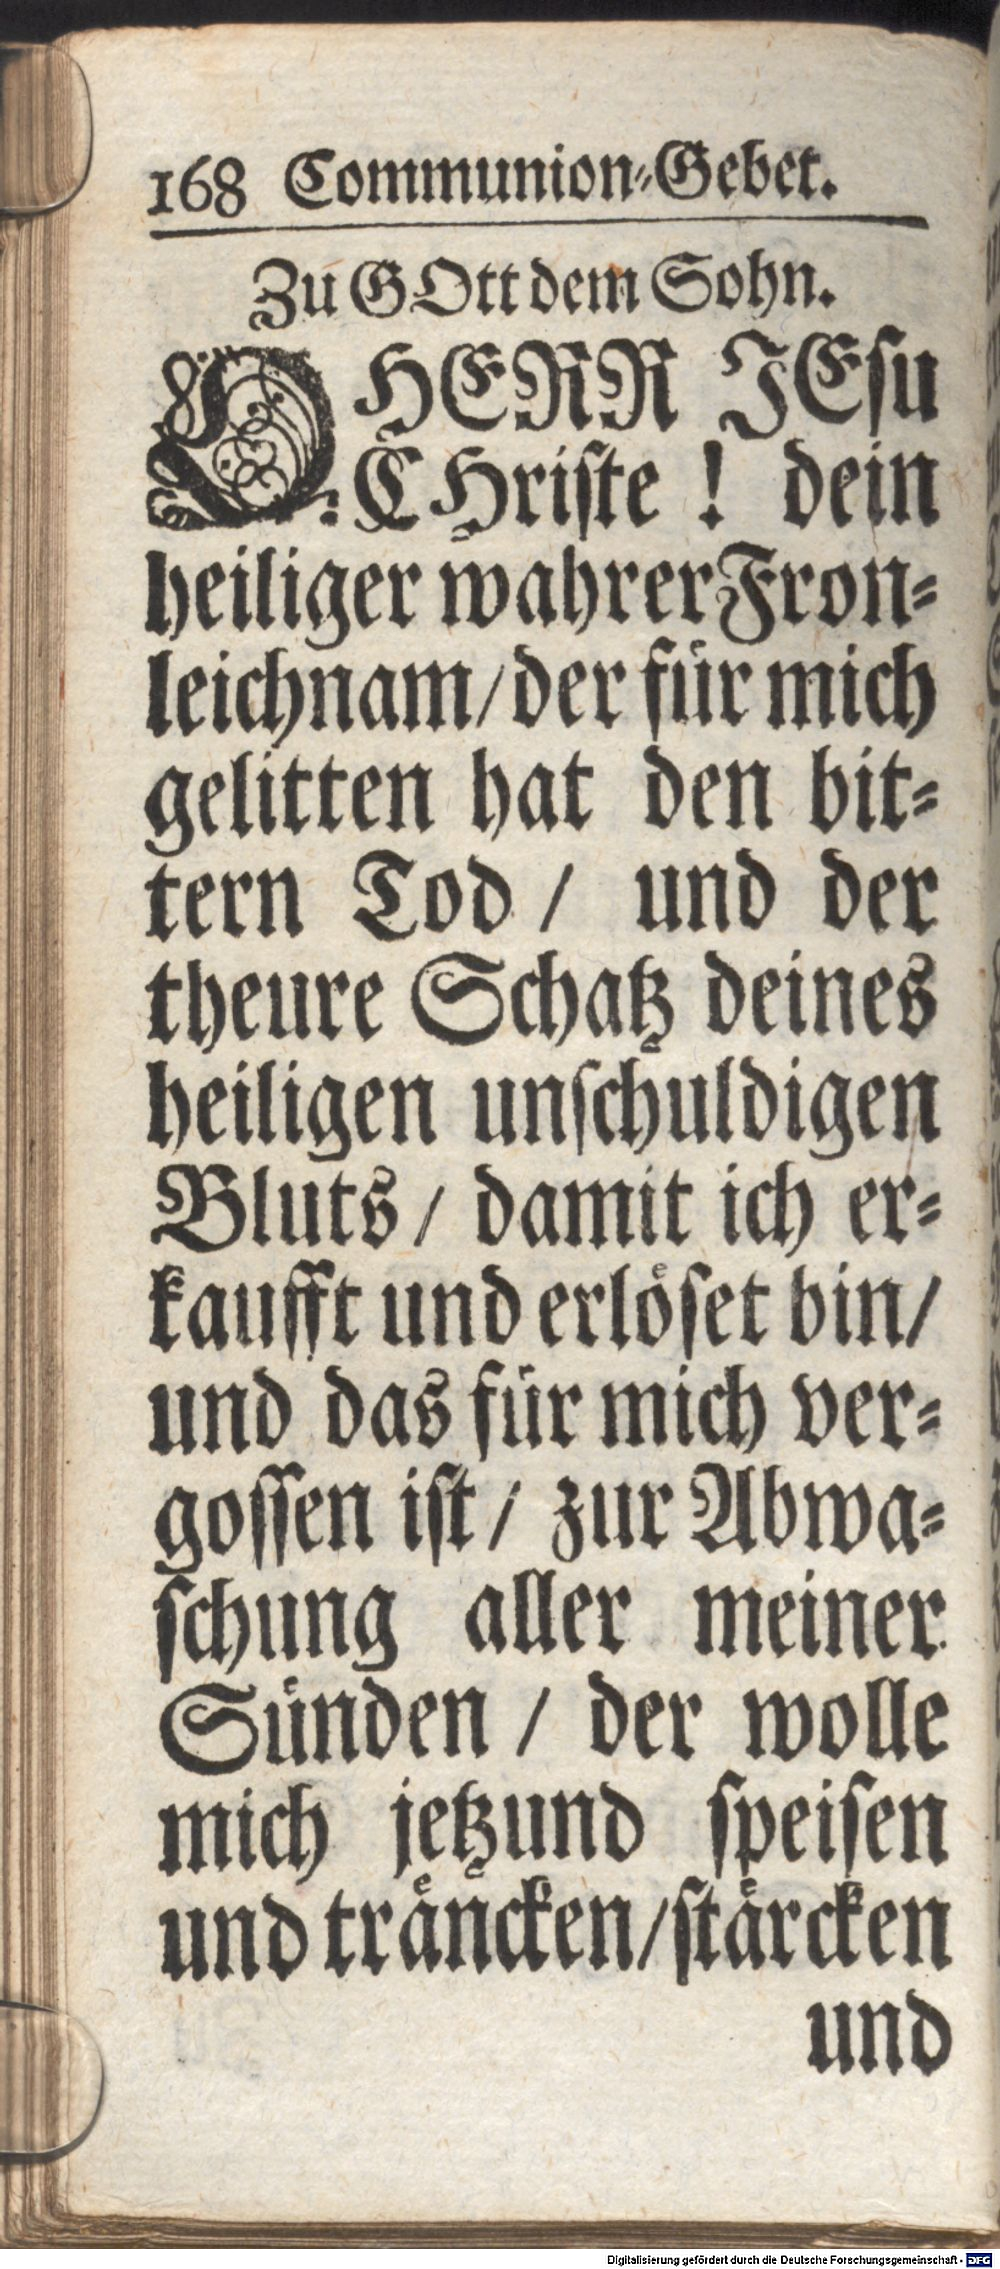 168 Communion-Gebet.
Zu GOtt dem Sohn.
O HERR JEsu
CHriste ! dein
heiliger wahrer Fron-
leichnam/ der für mich
gelitten hat den bit-
tern Tod / und der
theure Schatz deines
heiligen unschuldigen
Bluts / damit ich er-
kaufft und erlöset bin/
und das für mich ver-
gossen ist / zur Abwa-
schung aller meiner
Sünden / der wolle
mich jetzund speisen
und träncken/ stärcken
und
Digitalisierung gefördert durch die Deutsche Forschungsgemeinschaft - DFG